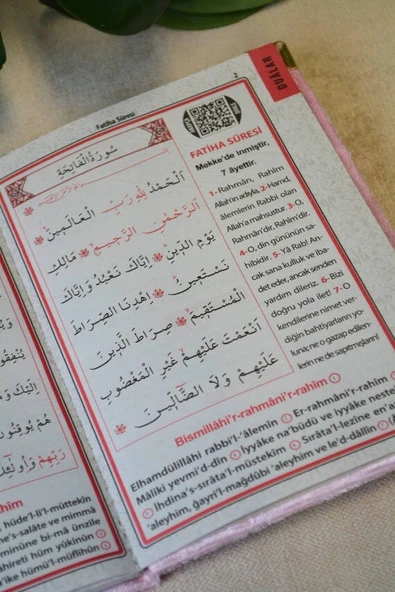 2
DUALAR
Fatiha Sûresi
سُورَةُ الْفَاتِحَةِ
اَلْحَمْدُ لِلّٰهِ رَبِّ الْعَالَمِينَ
اَلرَّحْمٰنِ الرَّحِيمِ مَالِكِ
يَوْمِ الدِّينِ اِيَّاكَ نَعْبُدُ وَاِيَّاكَ
نَسْتَعِينُ اِهْدِنَا الصِّرَاطَ
الْمُسْتَقِيمَ صِرَاطَ الَّذِينَ
اَنْعَمْتَ عَلَيْهِمْ غَيْرِ الْمَغْضُوبِ
عَلَيْهِمْ وَلَا الضَّالِّينَ
FATİHA SÛRESİ
Mekke'de inmiştir,
7 âyettir.
1- Rahmân, Rahim
Allah'ın adıyla, 2-Hamd,
âlemlerin Rabbi olan
Allah'a mahsustur. 3-O,
Rahmân'dır, Rahim'dir.
4-O, din gününün sa-
hibidir. 5- Yâ Rab! An-
cak sana kulluk ve iba-
det eder, ancak senden
yardım dileriz. 6- Bizi
doğru yola ilet! 7-O
kendilerine nimet ver-
diğin bahtiyarların yo-
luna; ne o gazap edilen-
lerin ne de sapıtmışların!
Bismillâhi'r-rahmâni'r-rahîm
Elhamdülillâhi rabbi'l-'âlemîn Er-rahmâni'r-rahîm
Mâliki yevmi'd-dîn İyyâke na'büdü ve iyyâke neste
İhdina's-sırâta'l-müstekîm Sırâta'l-lezîne en'a
'aleyhim, ğayri'l-mağdûbi 'aleyhim ve le'd-dâllîn
رَبِّهِمْ وَاُولٰئِ
hîm
hüde'l-li'l-müttekîn
ne's-salâte ve mimmâ
minûne bi-mâ ünzile
âhireti hüm yûkinûn
'ike hümü'l-müflihûn